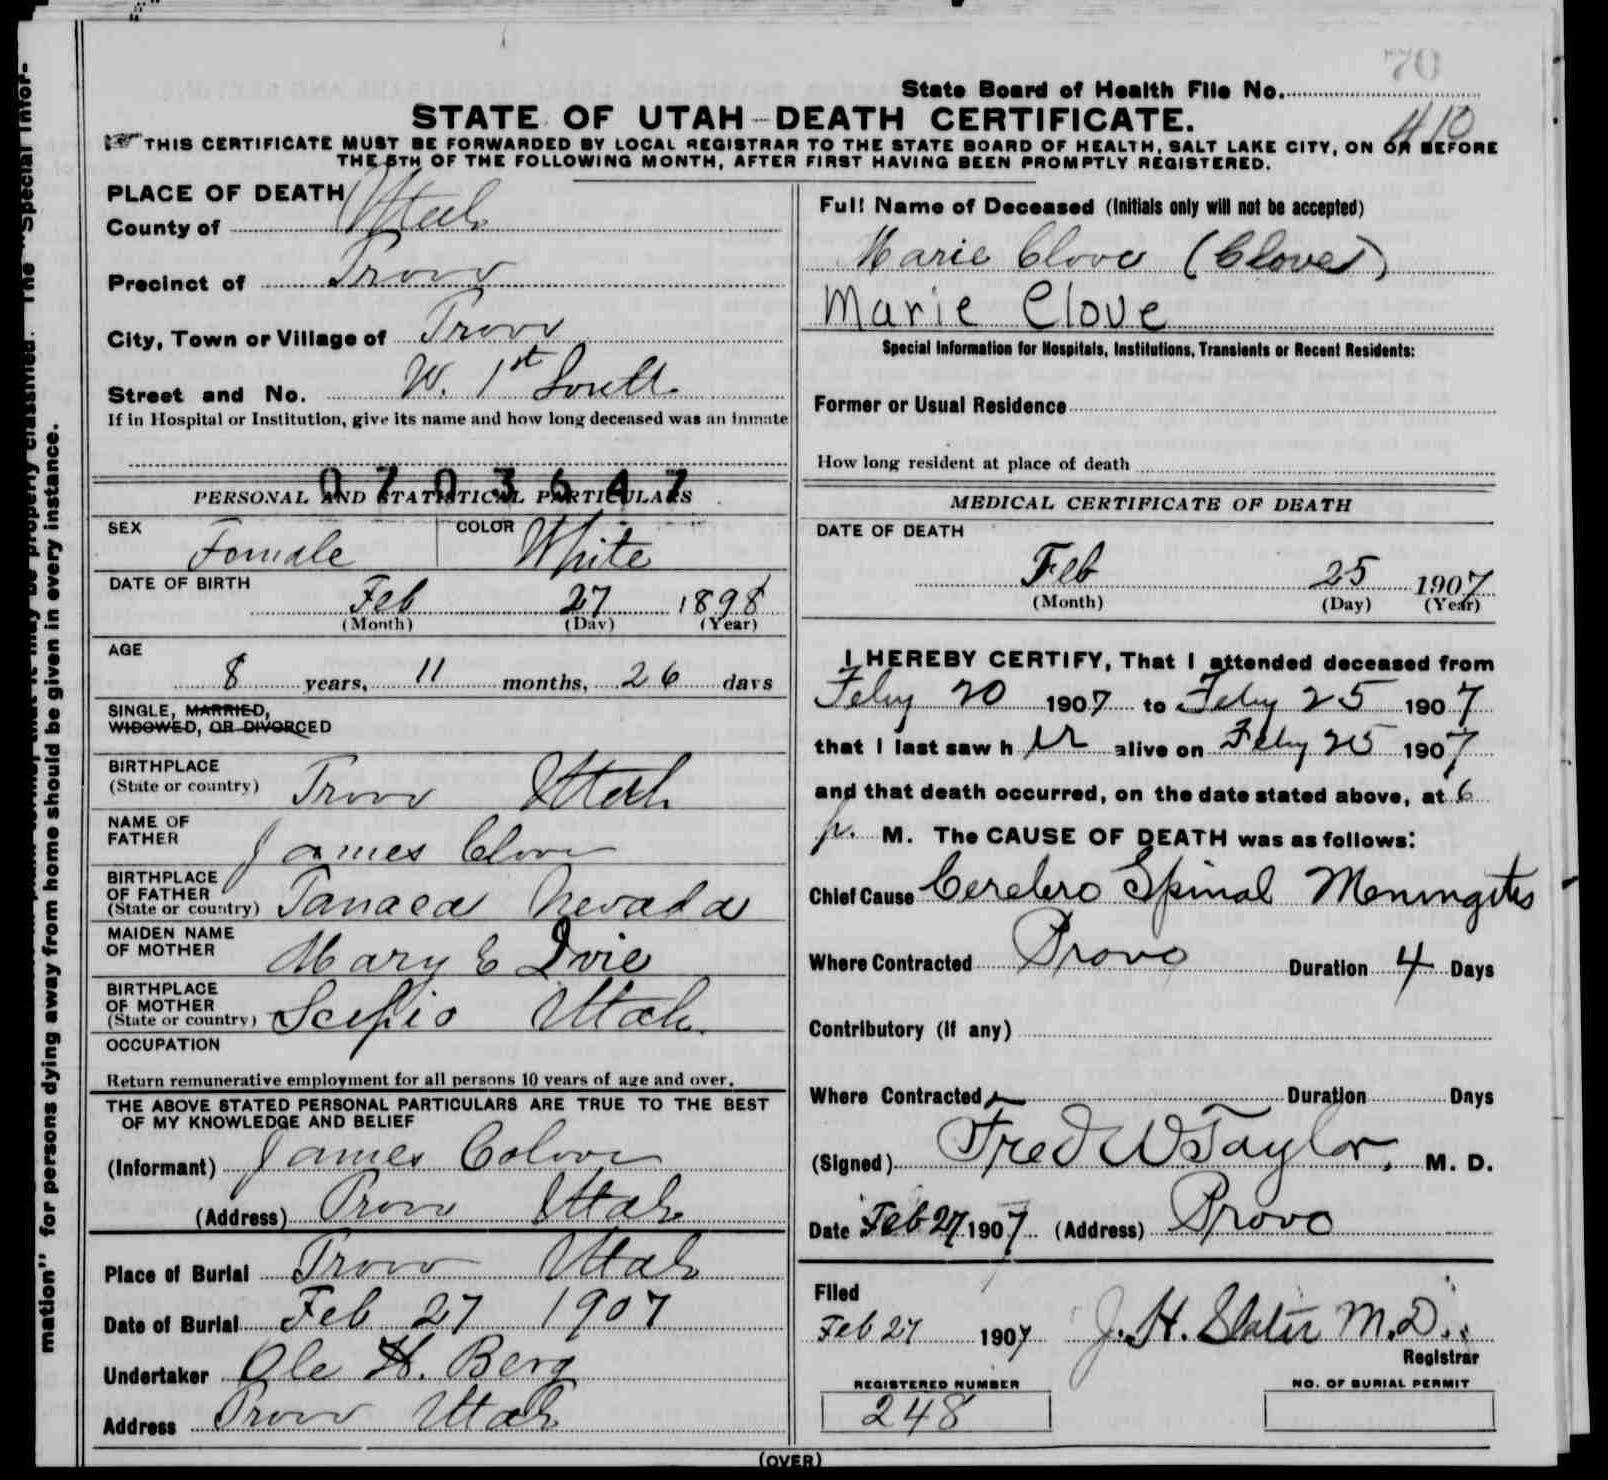 70
State Board of Health File No.
410
STATE OF UTAH—DEATH CERTIFICATE.
THIS CERTIFICATE MUST BE FORWARDED BY LOCAL REGISTRAR TO THE STATE BOARD OF HEALTH, SALT LAKE CITY, ON OR BEFORE
THE 5TH OF THE FOLLOWING MONTH, AFTER FIRST HAVING BEEN PROMPTLY REGISTERED.
PLACE OF DEATH
County of Utah
Precinct of Provo
City, Town or Village of Provo
Street and No. W. 1st South
If in Hospital or Institution, give its name and how long deceased was an inmate
0703647
PERSONAL AND STATISTICAL PARTICULARS
SEX Female COLOR White
DATE OF BIRTH
Feb 27 1898
(Month) (Day) (Year)
AGE
8 years, 11 months, 26 days
SINGLE, MARRIED,
WIDOWED, OR DIVORCED
BIRTHPLACE
(State or country) Provo Utah
NAME OF
FATHER James Clove
BIRTHPLACE
OF FATHER
(State or country) Panaca Nevada
MAIDEN NAME
OF MOTHER Mary E Ivie
BIRTHPLACE
OF MOTHER
(State or country) Scipio Utah.
OCCUPATION
Return remunerative employment for all persons 10 years of age and over.
THE ABOVE STATED PERSONAL PARTICULARS ARE TRUE TO THE BEST
OF MY KNOWLEDGE AND BELIEF
(Informant) James Colove
(Address) Provo Utah
Place of Burial Provo Utah
Date of Burial Feb 27 1907
Undertaker Ole H. Berg
Address Provo Utah
Full Name of Deceased (Initials only will not be accepted)
Marie Clove (Clove)
Marie Clove
Special Information for Hospitals, Institutions, Transients or Recent Residents:
Former or Usual Residence
How long resident at place of death
MEDICAL CERTIFICATE OF DEATH
DATE OF DEATH
Feb 25 1907
(Month) (Day) (Year)
I HEREBY CERTIFY, That I attended deceased from
Feby 20 1907 to Feby 25 1907
that I last saw her alive on Feby 25 1907
and that death occurred, on the date stated above, at 6
p. M. The CAUSE OF DEATH was as follows:
Chief Cause Cerebro Spinal Meningitis
Where Contracted Provo Duration 4 Days
Contributory (If any)
Where Contracted Duration Days
(Signed) Fred W Taylor, M. D.
Date Feb 27 1907 (Address) Provo
Filed
Feb 27 1907 J. H. Slater M.D.
Registrar
REGISTERED NUMBER
248
NO. OF BURIAL PERMIT
(OVER)
mation" for persons dying away from home should be given in every instance.
be properly classified. The "Special Infor-